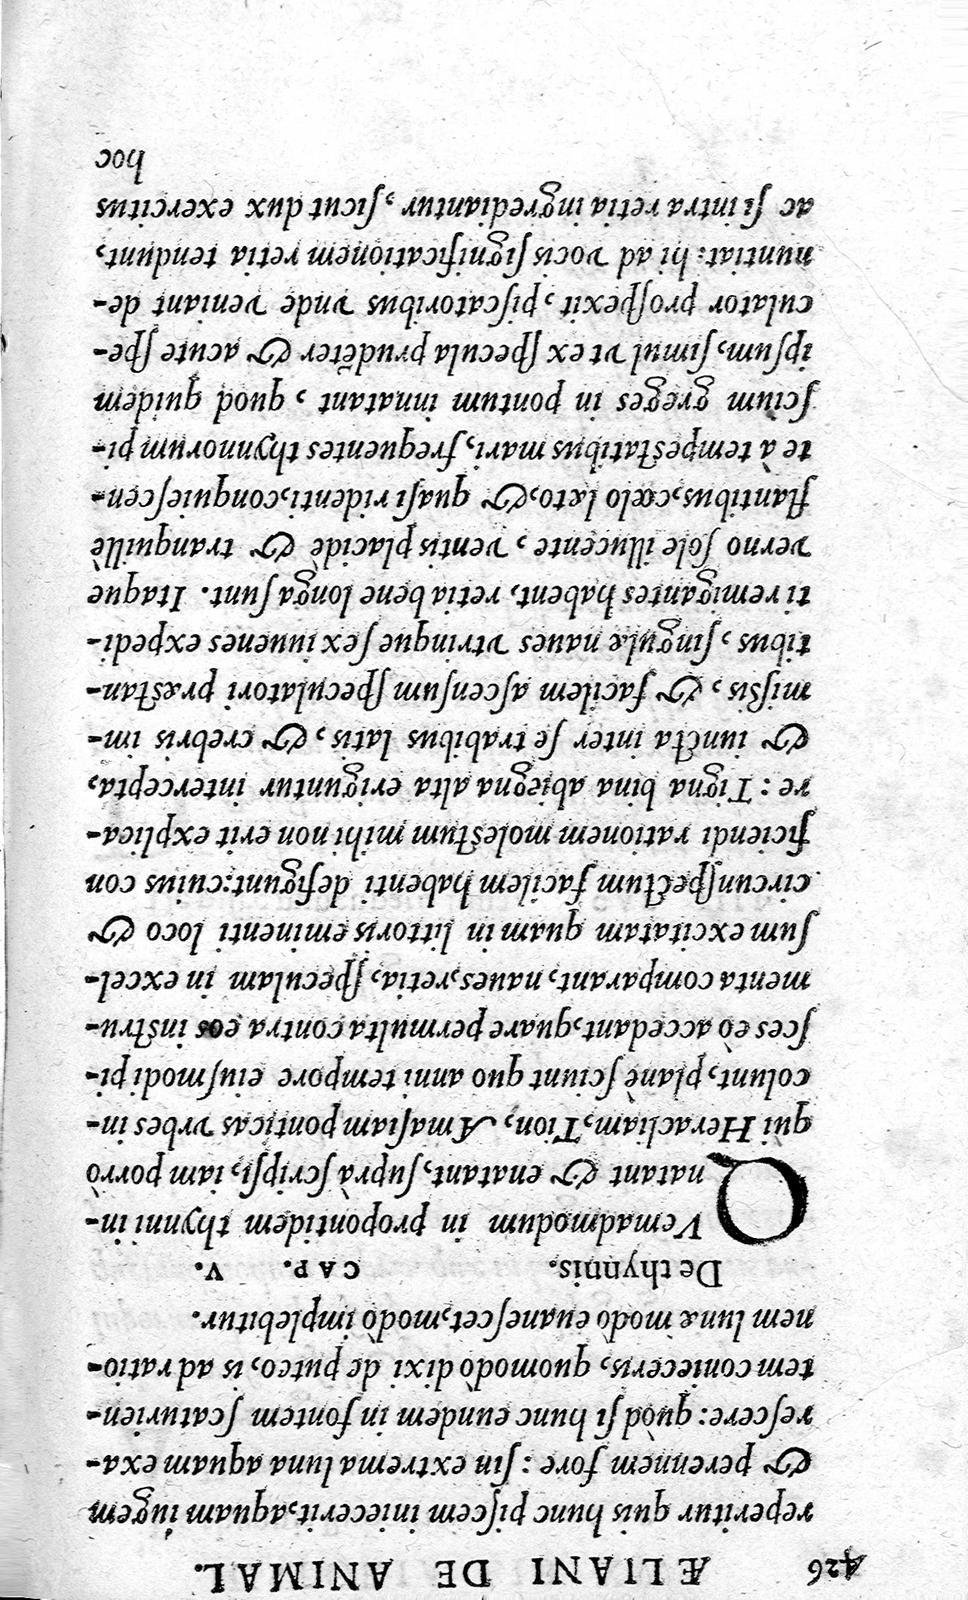 426 ÆLIANI DE ANIMAL.
reperitur quis hunc piscem iniecerit, aquam iugem
& perennem fore : sin extrema luna aquam exa-
rescere: quòd si hunc eundem in fontem scaturien-
tem conieceris, quomodò dixi de puteo, is ad ratio-
nem lunæ modò euanescet, modò implebitur.
De thynnis. CAP. V.
QVemadmodum in propontidem thynni in-
natant & enatant, suprà scripsi, iam porrò
qui Heracliam, Tion, Amasiam ponticas vrbes in-
colunt, planè sciunt quo anni tempore eiusmodi pi-
sces eò accedant, quare permulta contra eos instru-
menta comparant, naues, retia, speculam in excel-
sum excitatam quam in littoris eminenti loco &
circunspectum facilem habenti defigunt: cuius con
ficiendi rationem molestum mihi non erit explica-
re : Tigna bina abiegna alta eriguntur intercepta,
& iuncta inter se trabibus latis, & crebris im-
mißis, & facilem ascensum speculatori præstan-
tibus, singulæ naues vtrinque sex iuuenes expedi-
ti remigantes habent, retia bene longa sunt. Itaque
verno sole illucente, ventis placidè & tranquillè
flantibus, cœlo læto, & quasi ridenti, conquiescen-
te à tempestatibus mari, frequentes thynnorum pi-
scium greges in pontum innatant, quod quidem
ipsum, simul vt ex specula prudēter & acute spe-
culator prospexit, piscatoribus vnde veniant de-
nuntiat: hi ad vocis significationem retia tendunt,
ac si intra retia ingrediantur, sicut dux exercitus
hoc